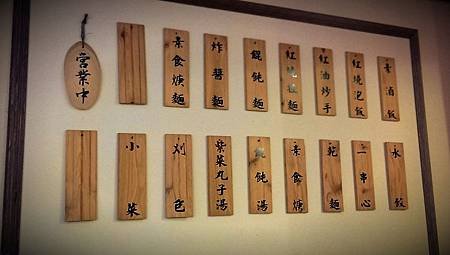 營業中
素食焿麵
炸醬麵
餛飩麵
紅油炒手
紅燒泡飯
小菜
刈色
紫菜丸子湯
餛飩湯
素食焿
乾麵
一串心
水餃